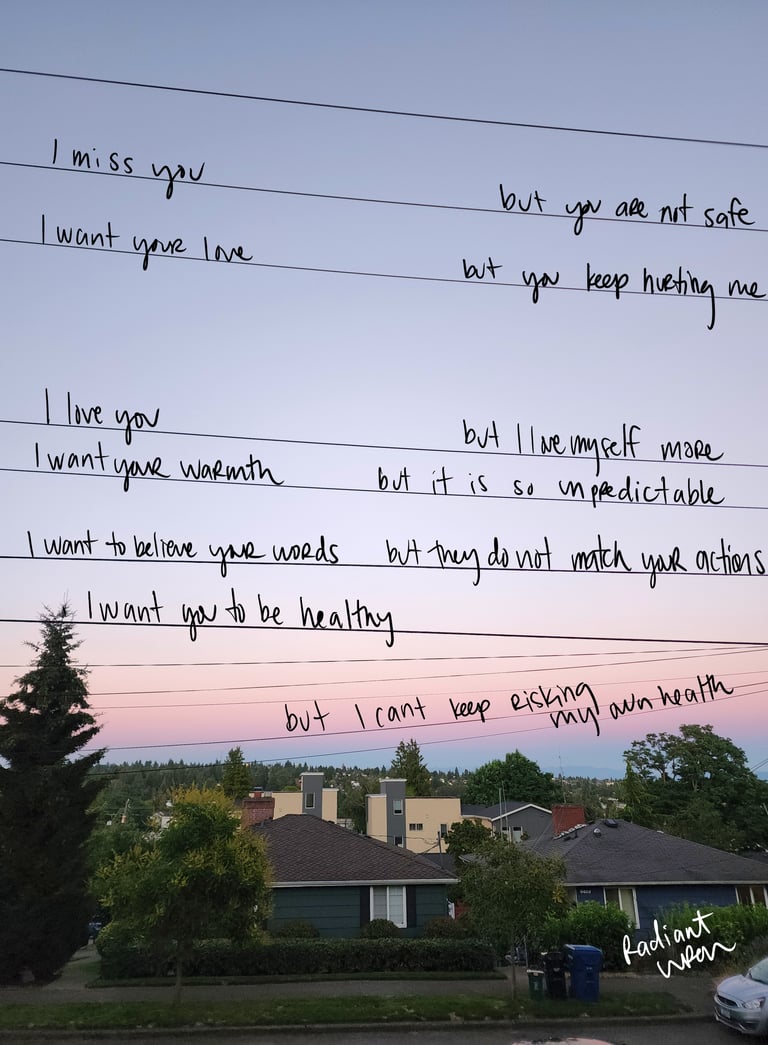 I miss you
but you are not safe
I want your love
but you keep hurting me
I love you
but I love myself more
I want your warmth
but it is so unpredictable
I want to believe your words
but they do not match your actions
I want you to be healthy
but I cant keep risking
my own health
Radiant
wren